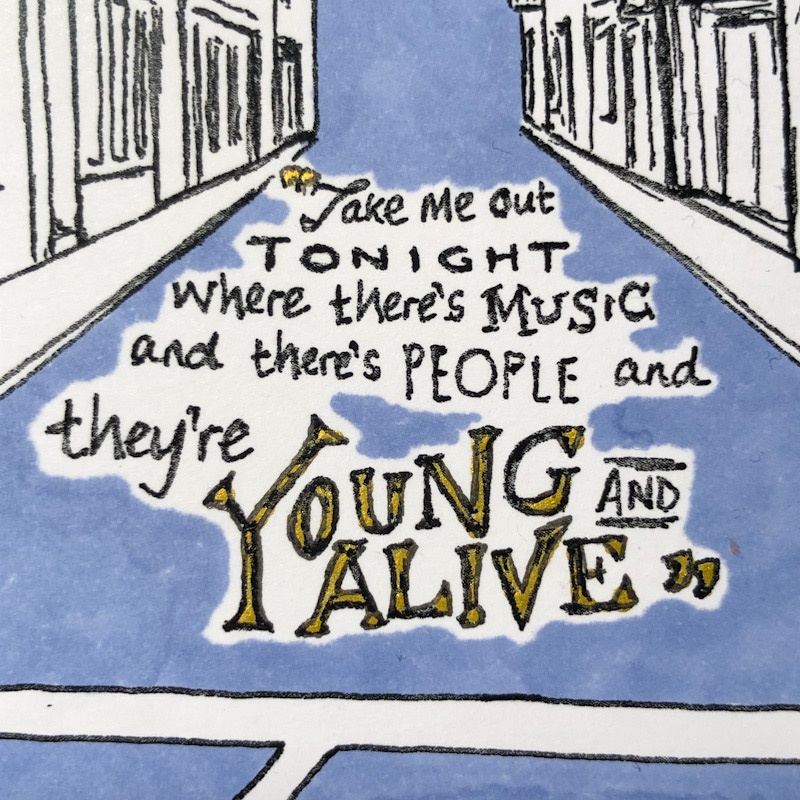 "Take Me Out
TONIGHT
Where there's MUSIC
and there's PEOPLE and
they're YOUNG AND
ALIVE"